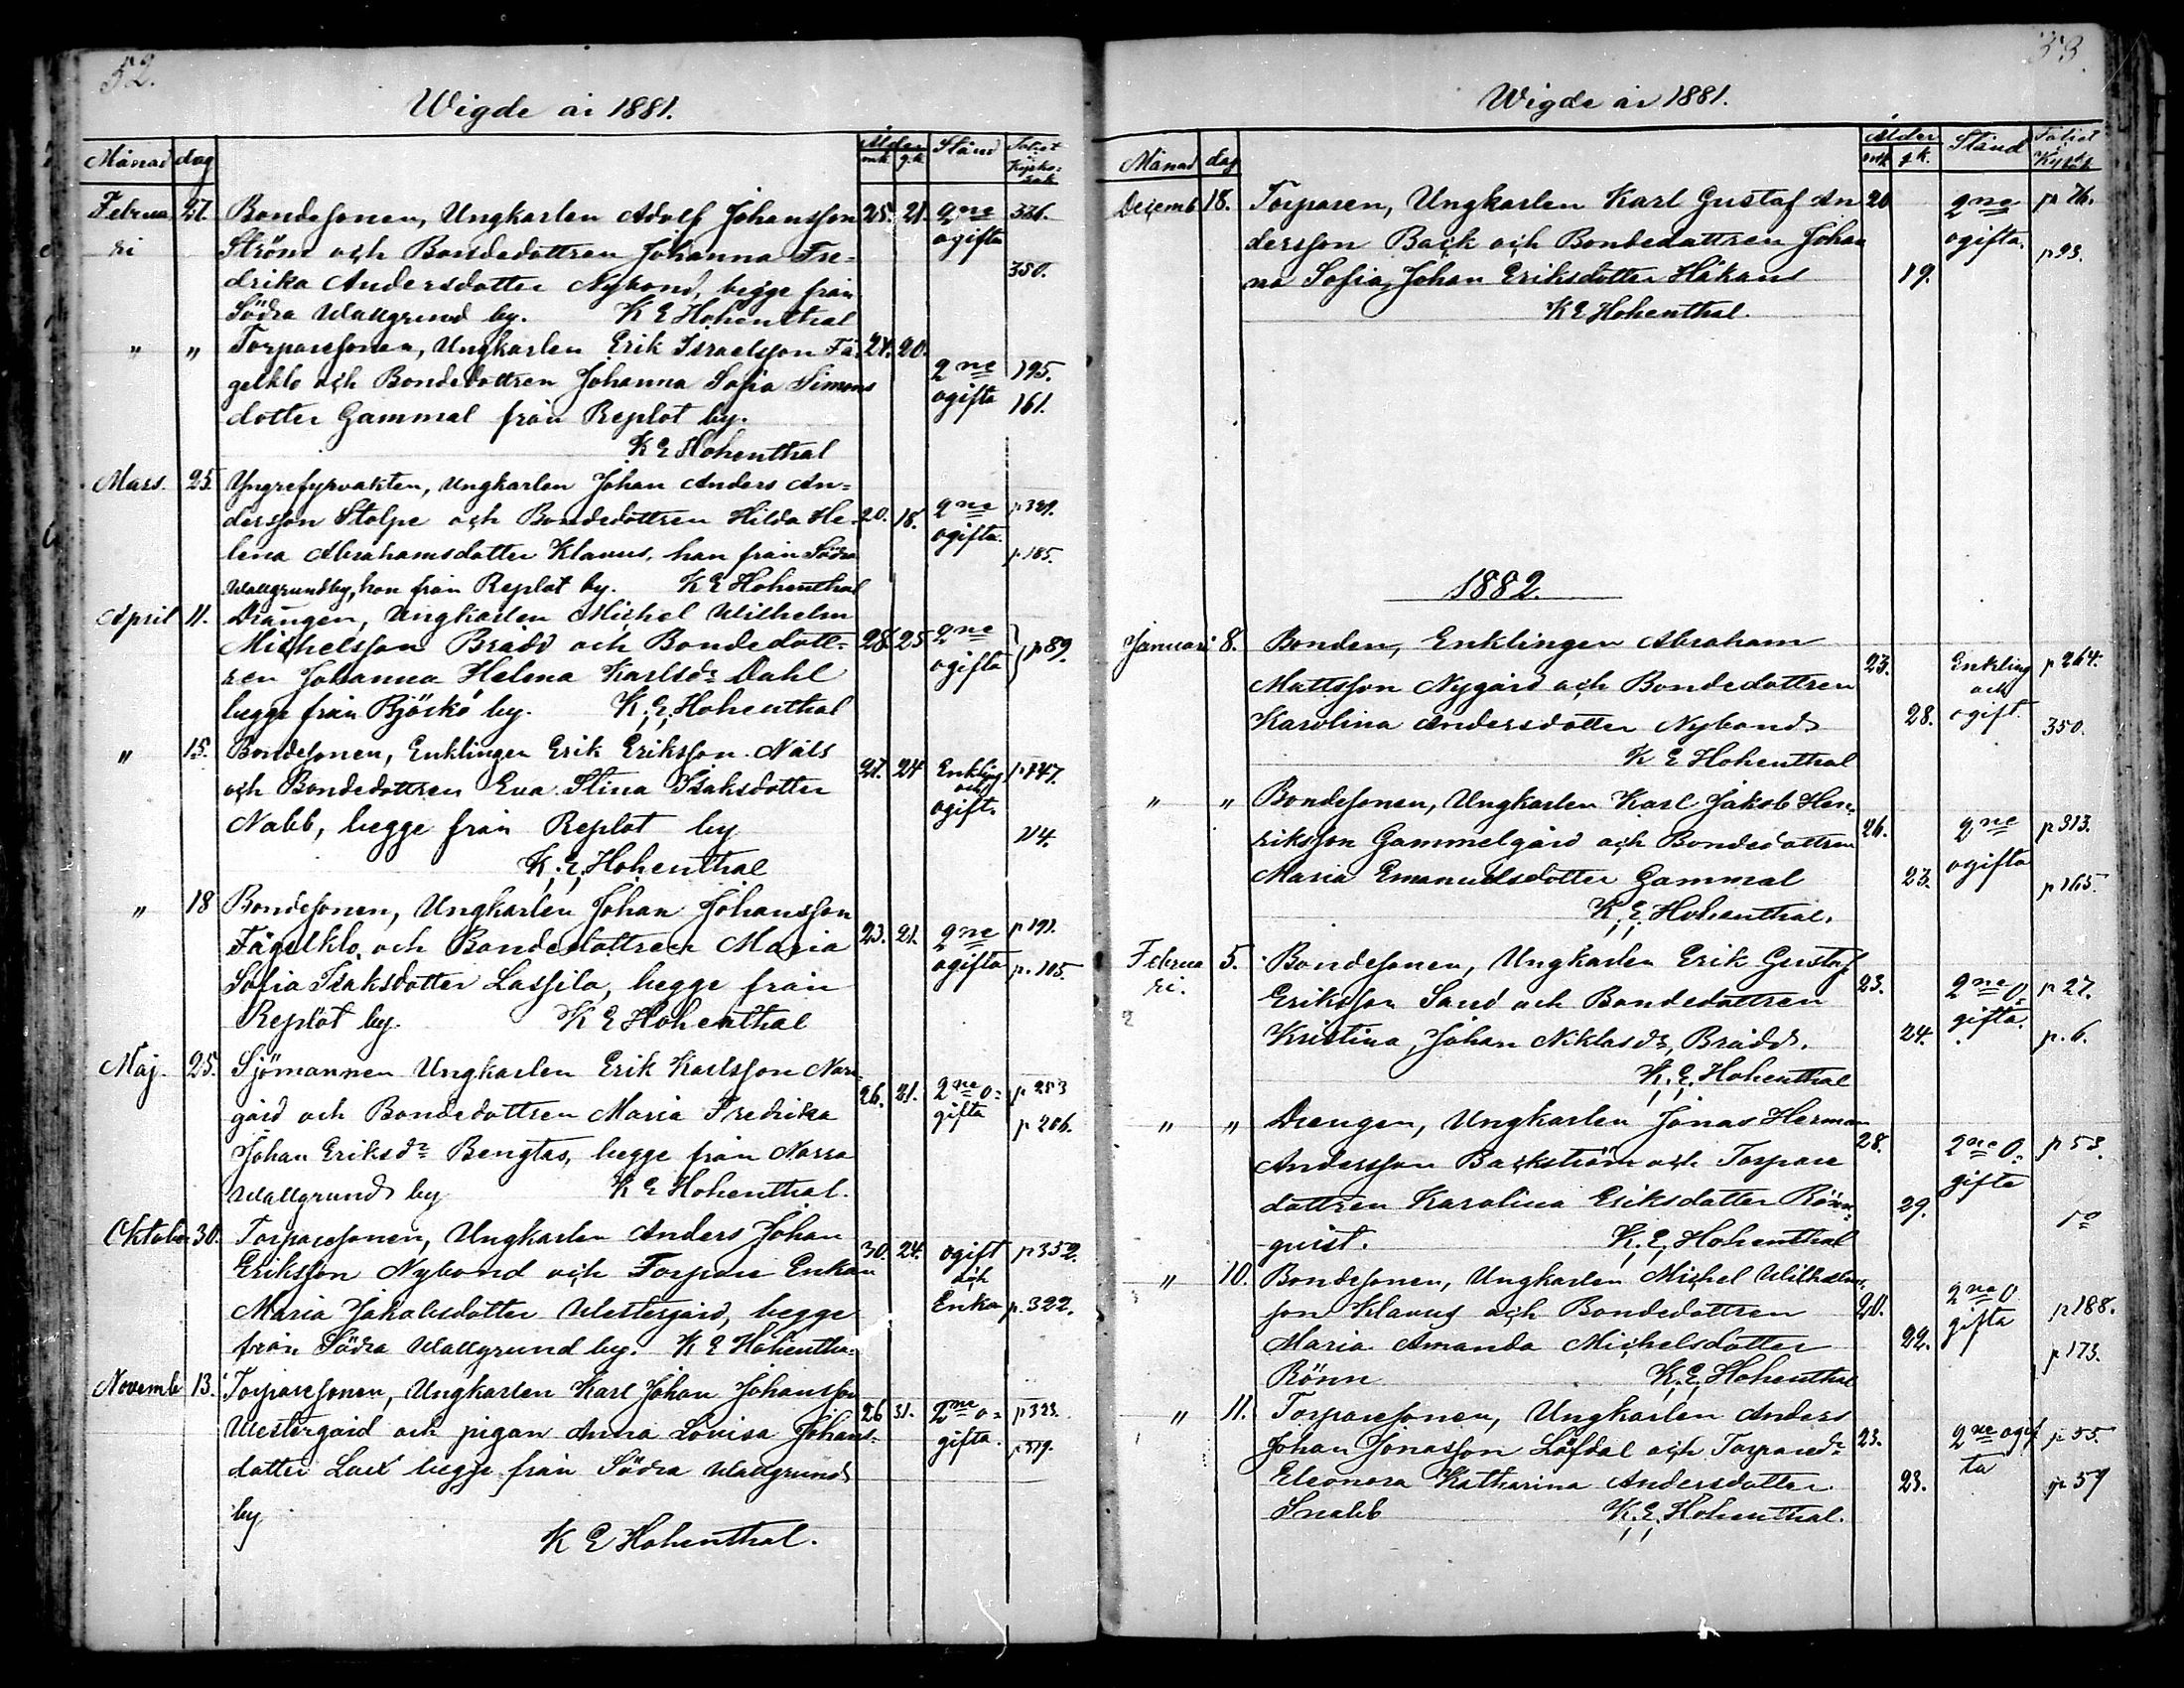 52.
Wigde år 1881.
Månad dag Ålder mk. q.k. Stånd Sidst Kyrko-bok
Februa 27. Bondesonen, Ungkarlen Adolf Johansson 25. 21. 2ne 336.
ri Ström och Bondedottren Johanna Fre- ogifta
drika Andersdotter Nybond, begge från 350.
Södra Wallgrund by. K E Hohenthal
" " Torparesonen, Ungkarlen Erik Israelsson Få- 24. 20.
gelklo och Bondedottren Johanna Sofia Simons 2ne 195.
dotter Gammal från Replot by. ogifta 161.
K E Hohenthal
Mars. 25. Yngrefyrvakten, Ungkarlen Johan Anders An-
dersson Stolpe och Bondedottren Hilda He- 20. 18. 2ne p 329.
lena Abrahamsdotter Klavus, han från Södra ogifta. p. 185.
Wallgrundby, hon från Replot by. K E Hohenthal
April 11. Drängen, Ungkarlen Michel Wilhelm
Michelsson Brädd och Bondedott- 28. 25 2ne p 89.
ren Johanna Helena Karlsdr Dahl ogifta
begge från Björkö by. K. E. Hohenthal
" 15. Bondesonen, Enklingen Erik Eriksson Näls
och Bondedottren Eva Stina Isaksdotter 27. 24 Enkling p 147.
Nabb, begge från Replot by och ogift. 214.
K. E. Hohenthal
" 18 Bondesonen, Ungkarlen Johan Johansson
Fågelklo, och Bondedottren Maria 23. 21. 2ne p 191.
Sofia Isaksdotter Lassila, begge från ogifta p. 105.
Replot by. K E Hohenthal
Maj. 25. Sjömannen Ungkarlen Erik Karlsson Norr-
gård och Bondedottren Maria Fredrika 26. 21. 2ne o- p 253
Johan Eriksdr Bengtas, begge från Norra gifta p 206.
Wallgrund by K E Hohenthal.
Oktober 30. Torparesonen, Ungkarlen Anders Johan
Eriksson Nybond och Torpare Enkan 30. 24. ogift p 352.
Maria Jakobsdotter Westergård, begge och Enka p. 322.
från Södra Wallgrund by. K E Hohentha-
Novemb 13. Torparesonen, Ungkarlen Karl Johan Johansson
Westergård och pigan Anna Lovisa Johans- 26 31. 2ne o- p 323.
dotter Lax begge från Södra Wallgrund gifta. p 319.
by
K E Hohenthal.
33.
Wigde år 1881.
Månad dag Ålder mk q k. Stånd Sidst Kyrkbk
Decemb 18. Torparen, Ungkarlen Karl Gustaf An 20 2ne p 76.
dersson Back och Bondedottren Johan ogifta. p 93.
na Sofia, Johan Eriksdotter Håkans 19.
K E Hohenthal.
1882.
Januari 8. Bonden, Enklingen Abraham
Mattsson Nygård och Bondedottren 23. Enkling p 264.
Karolina Andersdotter Nybond 28. och ogift. 350.
K E Hohenthal
" " Bondesonen, Ungkarlen Karl Jakob Hen-
riksson Gammelgård och Bondedottren 26. 2ne p 313.
Maria Emanuelsdotter Gammal 23. ogifta p 165.
K. E. Hohenthal.
Februa 5. Bondesonen, Ungkarlen Erik Gustaf
ri. Eriksson Sand och Bondedottren 23. 2ne O- p 27.
Kristina, Johan Niklasdr, Brädd. 24. gifta. p. 6.
K. E. Hohenthal
" " Drengen, Ungkarlen Jonas Herman
Andersson Backström och Torpare 28. 2ne O- p 53.
dottren Karolina Eriksdotter Rönn- 29. gifta
qvist. K. E. Hohenthal
" 10. Bondesonen, Ungkarlen Michel Wilhelms-
son Klavus och Bondedottren 20. 2ne O p 188.
Maria Amanda Michelsdotter 22. gifta p 173.
Rönn K. E. Hohenthal
" 11. Torparesonen, Ungkarlen Anders
Johan Jonasson Löfdal och Torparedr 23. 2ne ogif p 55.
Eleonora Katharina Andersdotter 23. ta p 59
Snabb K. E. Hohenthal.